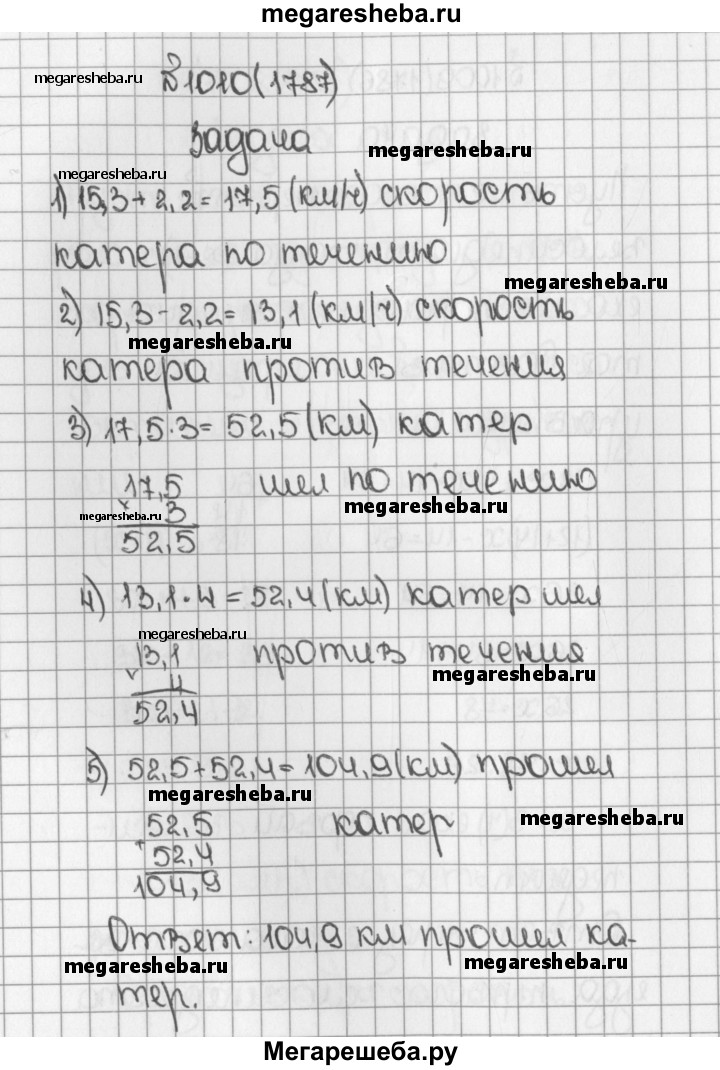 megaresheba.ru
№1010(1787)
megaresheba.ru
Задача
megaresheba.ru
megaresheba.ru
1) 15,3 + 2,2 = 17,5 (км/ч) скорость
катера по течению
megaresheba.ru
2) 15,3 - 2,2 = 13,1 (км/ч) скорость
megaresheba.ru
катера против течения
3) 17,5·3 = 52,5 (км) катер
17,5 шел по течению
megaresheba.ru
× 3
megaresheba.ru
52,5
4) 13,1·4 = 52,4 (км) катер шел
megaresheba.ru
13,1 против течения
megaresheba.ru
× 4
52,4
5) 52,5 + 52,4 = 104,9 (км) прошел
megaresheba.ru
52,5 катер
megaresheba.ru
+ 52,4
104,9
Ответ: 104,9 км прошел ка-
megaresheba.ru
megaresheba.ru
тер.
Мегарешеба.ру